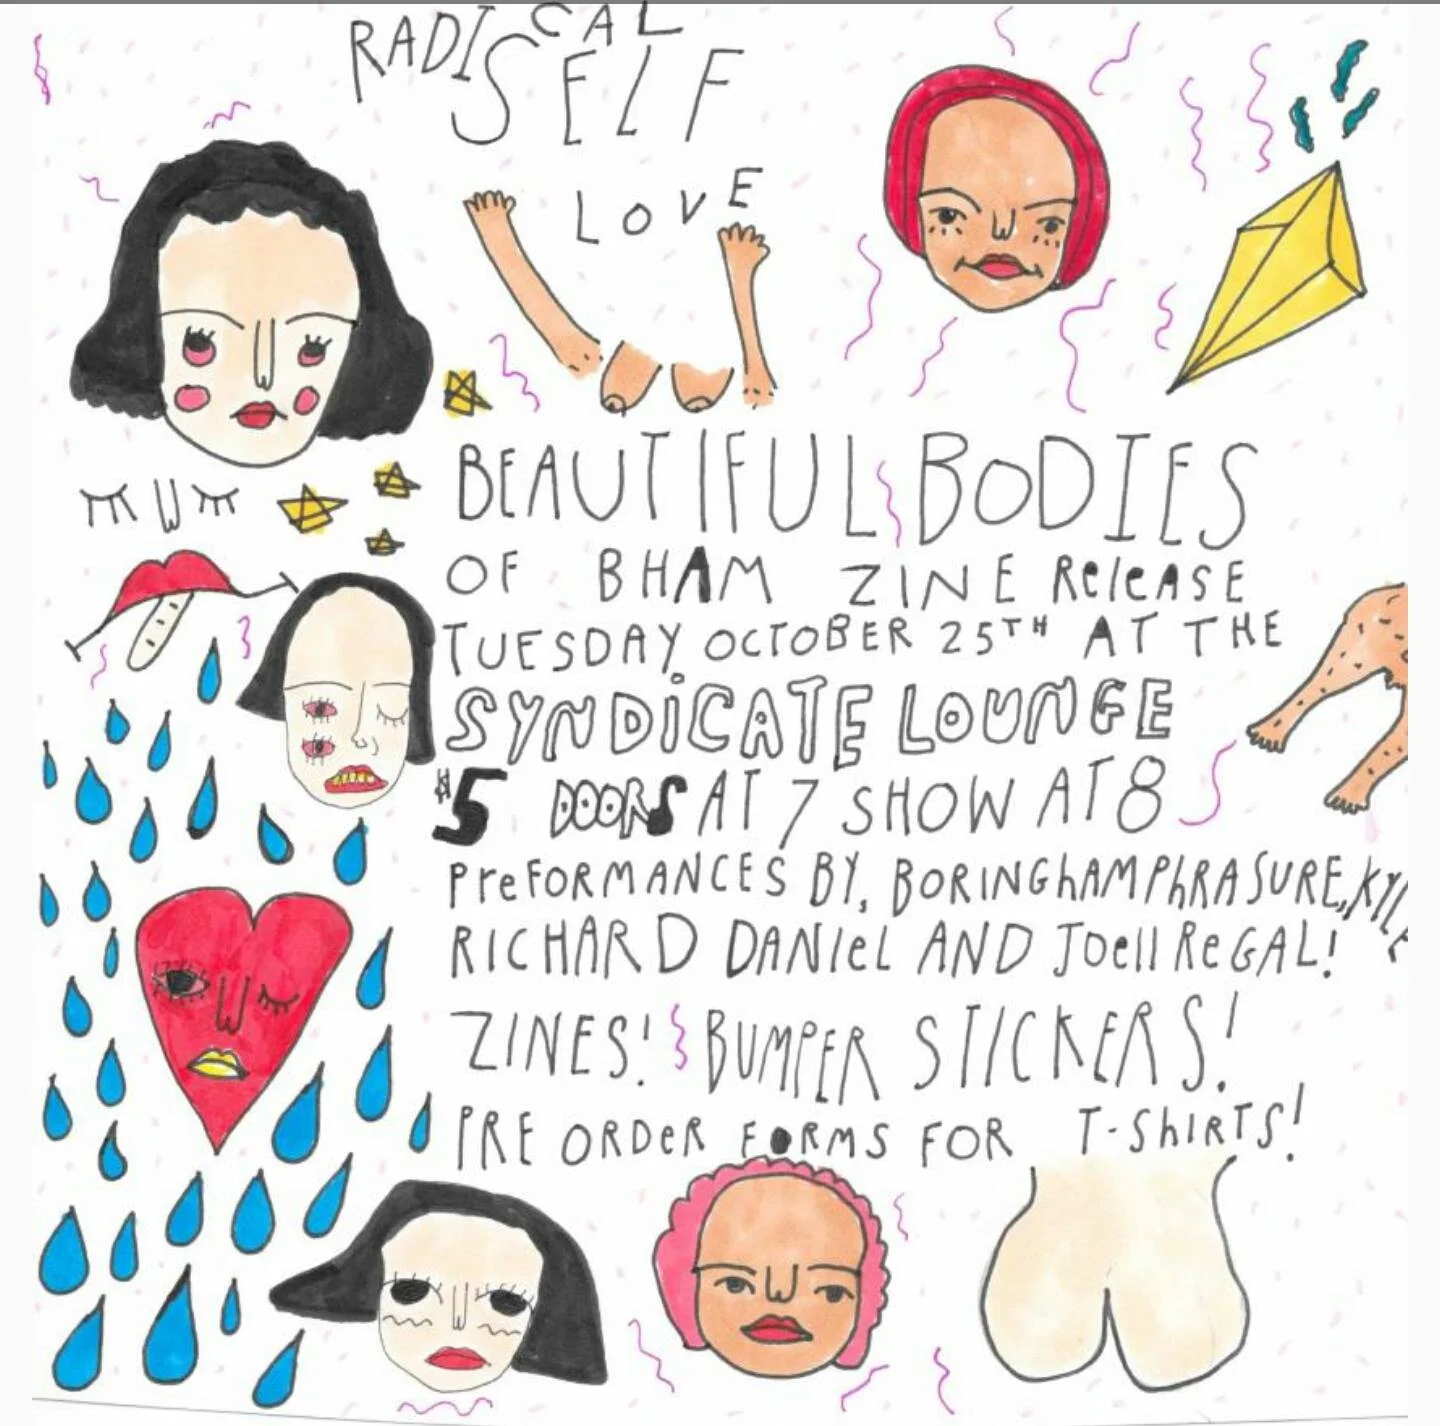 RADICAL
SELF
LOVE
BEAUTIFUL BODIES
OF BHAM ZINE ReleASE
TUESDAY OCTOBER 25TH AT THE
SYNDiCATE LOUNGE
$5 DOORS AT 7 SHOW AT 8
PreFORMANCES BY, BORINGhAMPhRASURE, KYLE
RICHARD DANIel AND Joell ReGAL!
ZINES! BUMPER STICKERS!
PRE ORDeR FORMS FOR T-ShIRTS!